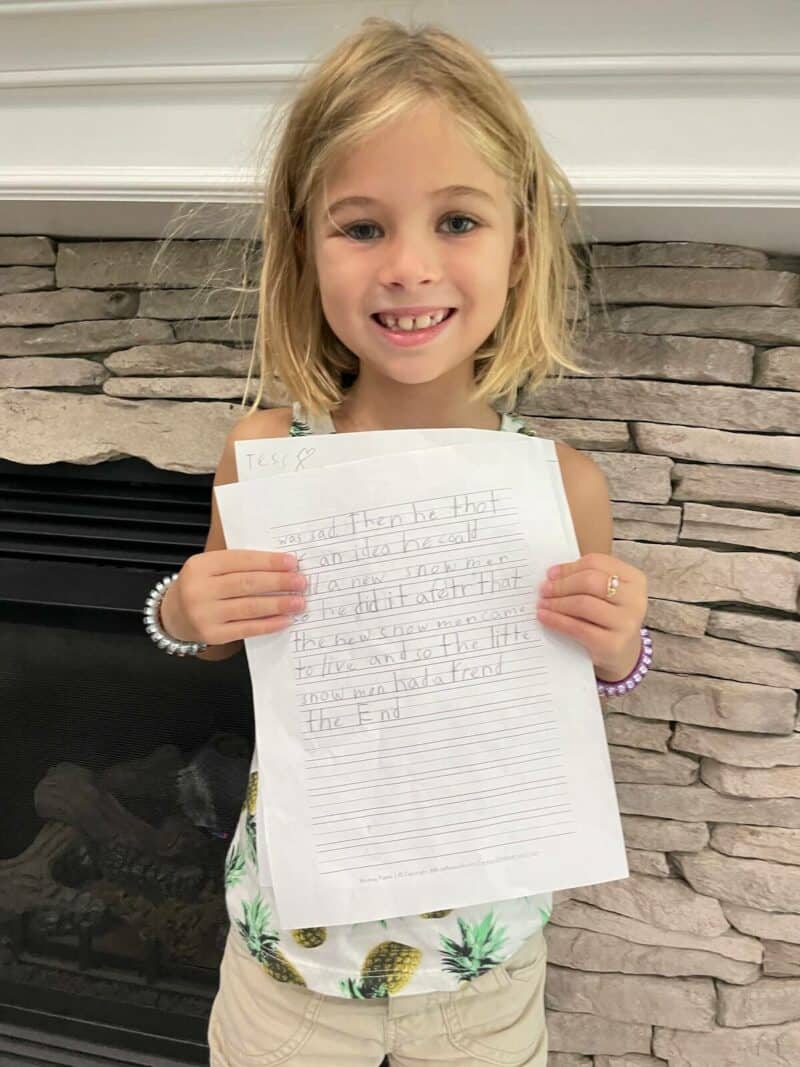 Tess
was sad Then he thot
an idea he coald
a new snow men
so he did it afetr That
the new snow men came
to live and so the little
snow men had a frend
the End